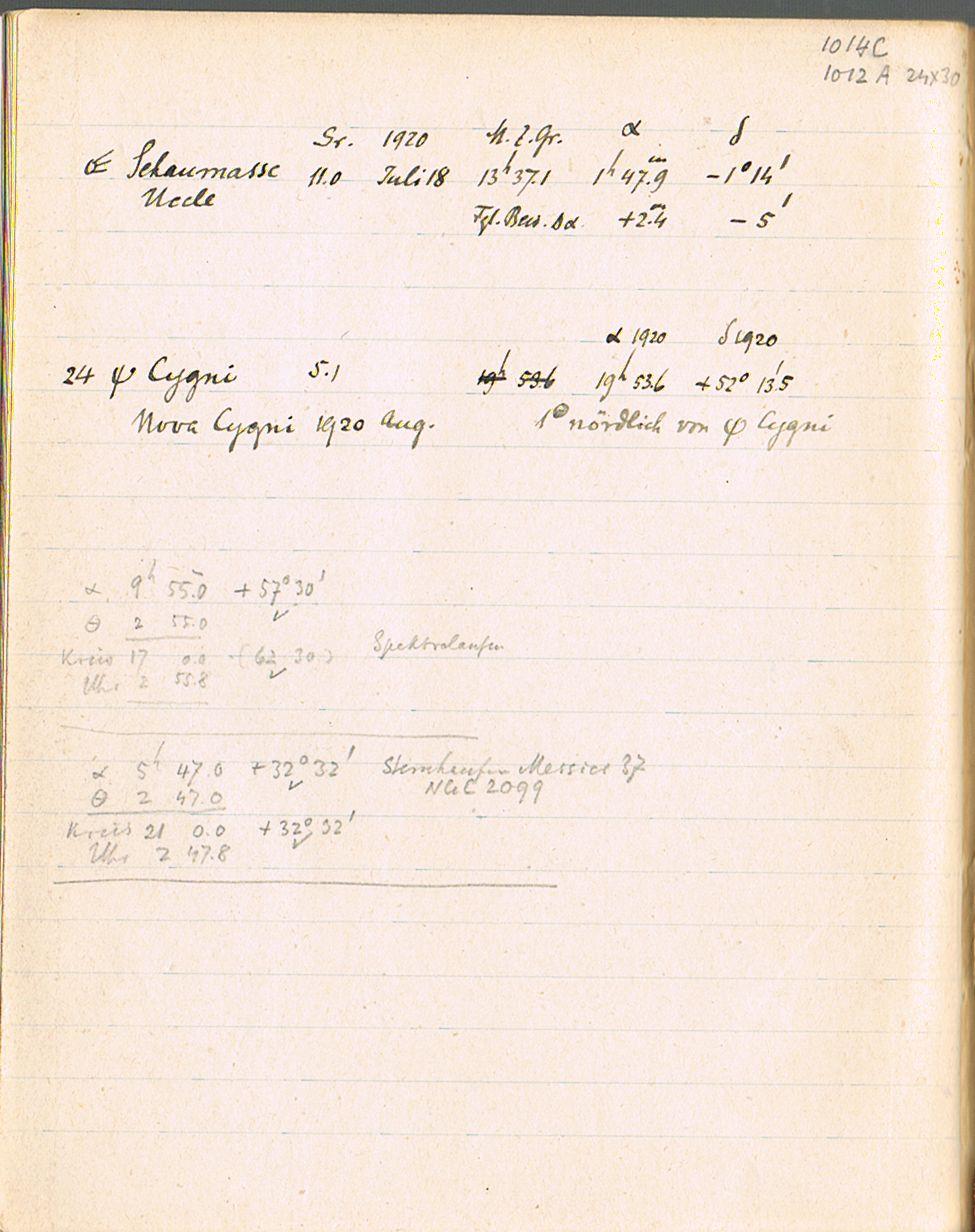 1014C
1012 A 24x30
Gr. 1920 M.Z.Gr. α δ
Schaumasse 11.0 Juli 18 13ʰ 37.1 1ʰ 47ᵐ.9 −1° 14'
Uccle Tgl. Bew. Δα +2ᵐ.4 − 5'
α 1920 δ 1920
24 ψ Cygni 5.1 19ʰ 53.6 19ʰ 53.6 +52° 13'.5
Nova Cygni 1920 Aug. 1° nördlich von ψ Cygni
α 9ʰ 55.0 + 57° 30'
θ 2 55.0
Kreis 17 0.0 (62 30) Spektralaufn
Uhr 2 55.8
α 5ʰ 47.0 +32° 32' Sternhaufen Messier 37
NGC 2099
θ 2 47.0
Kreis 21 0.0 +32° 32'
Uhr 2 47.8